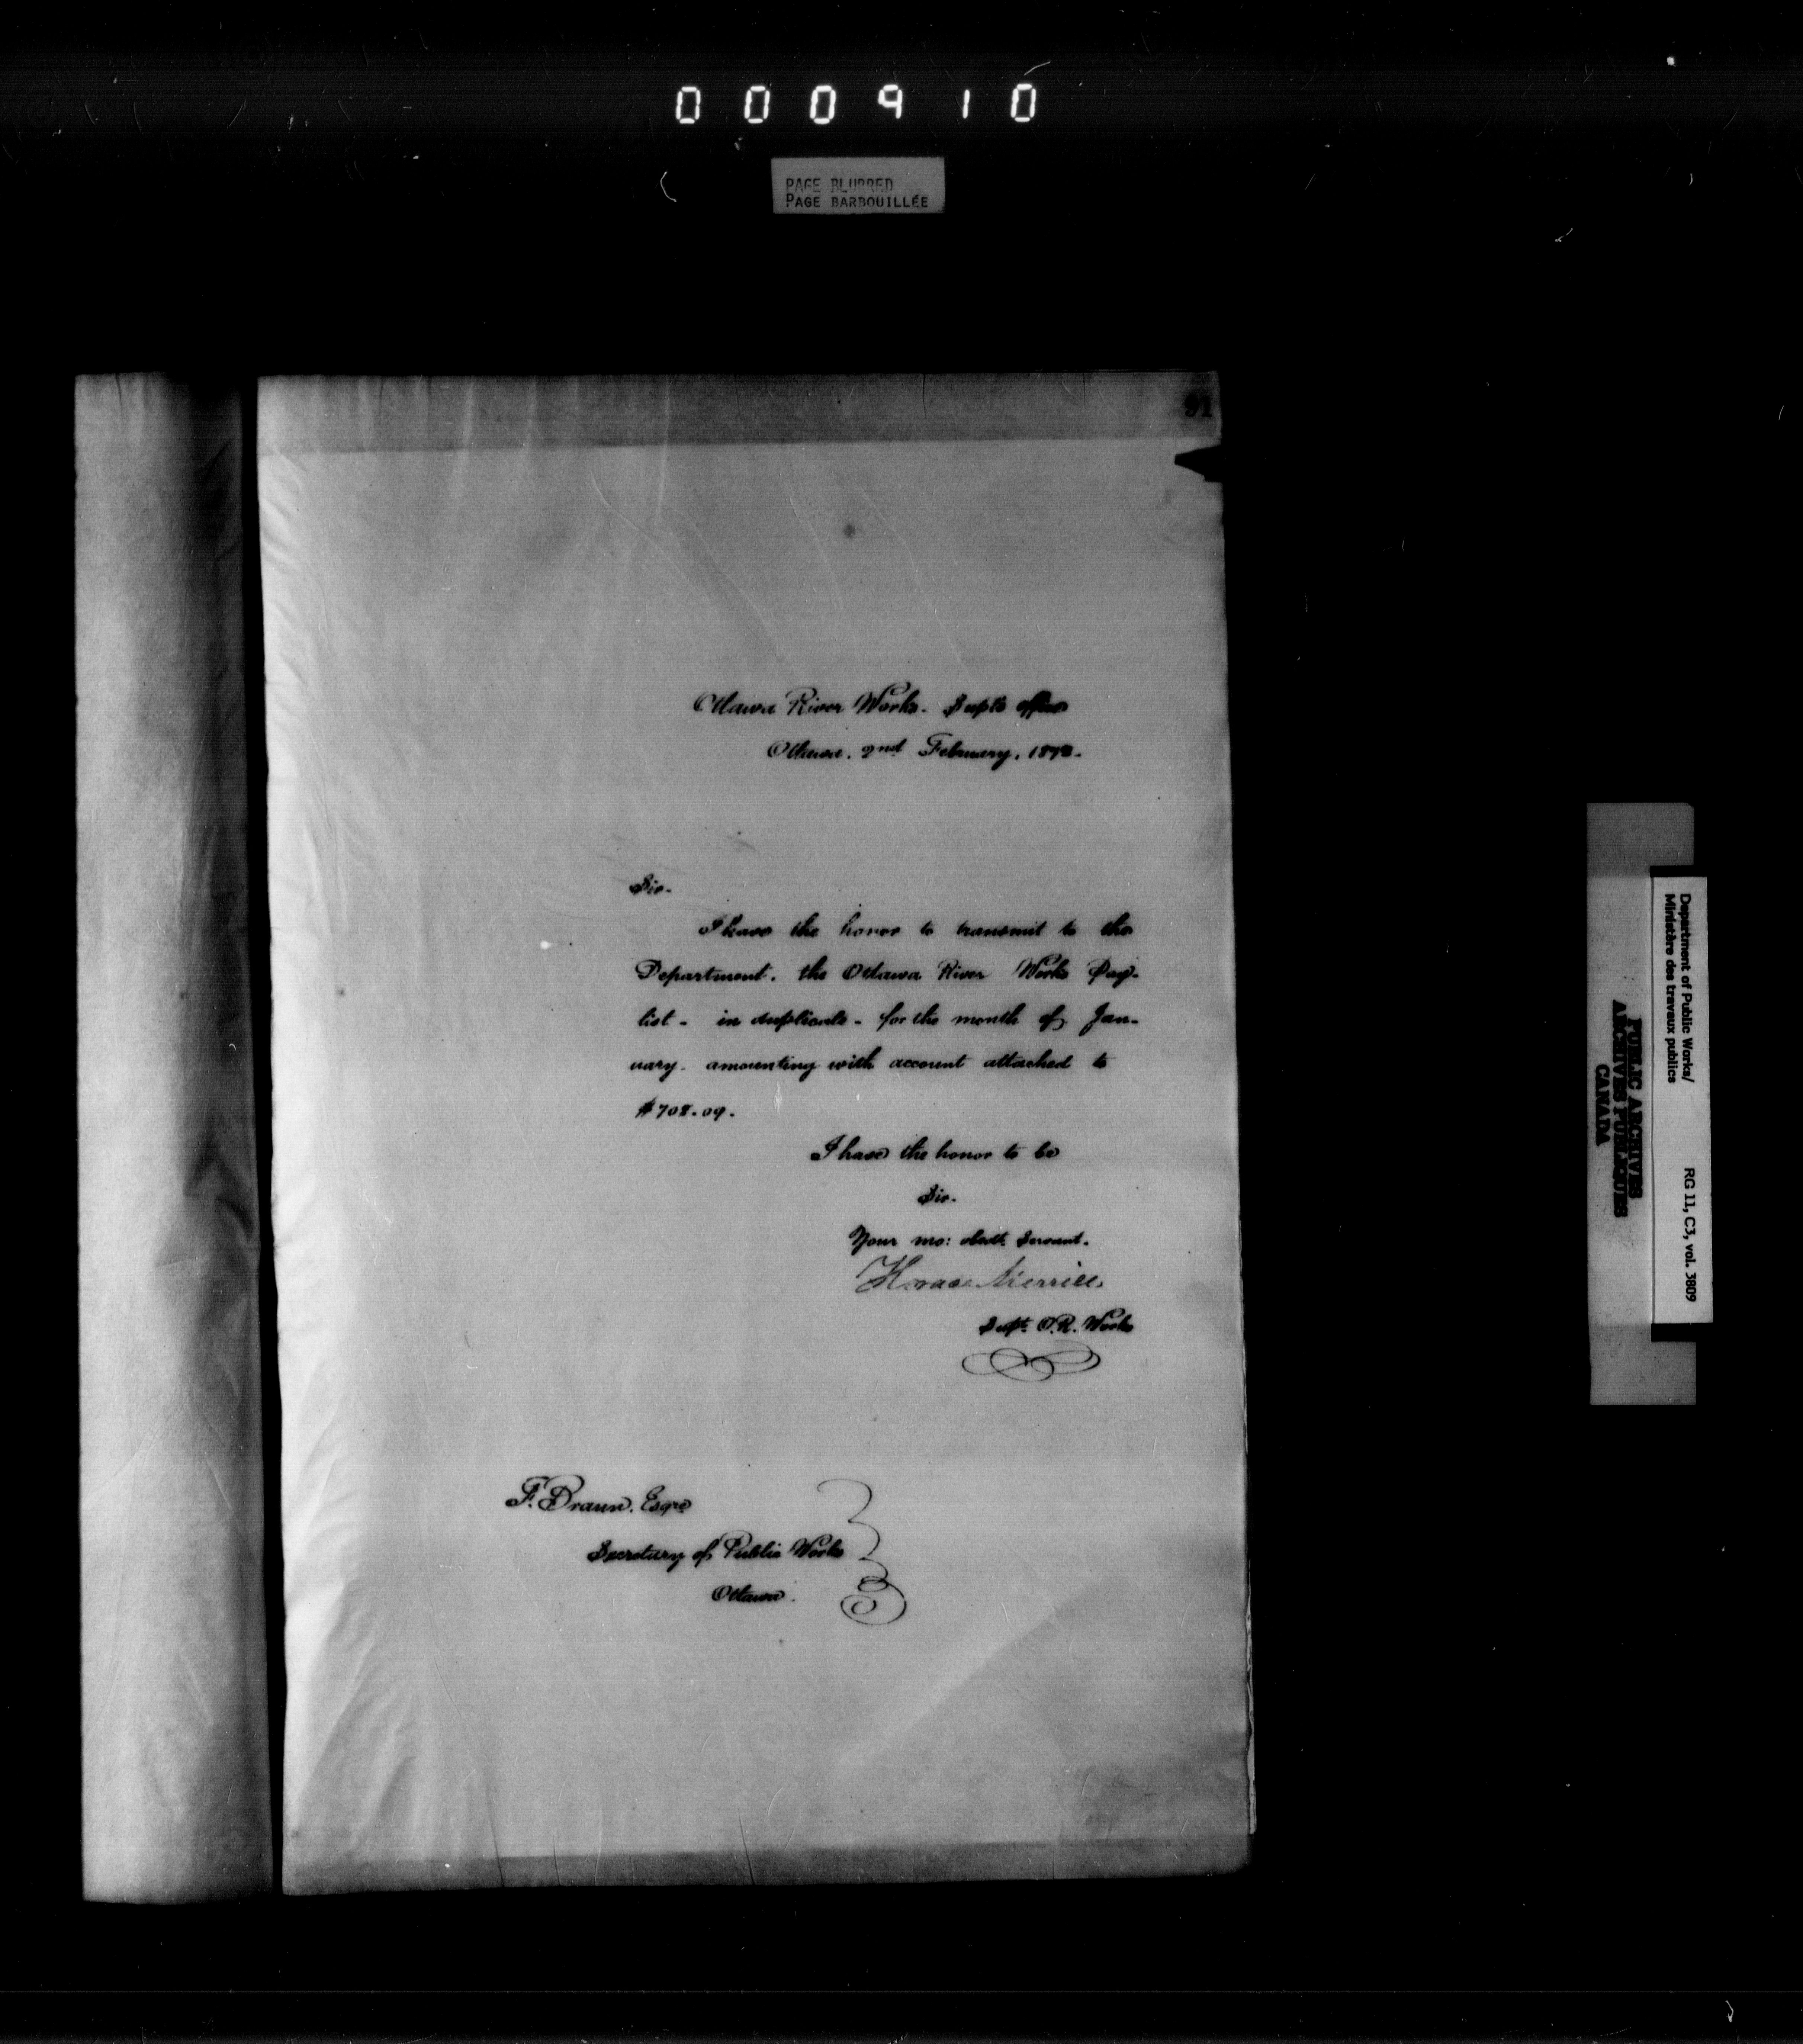 000910
PAGE BLURRED
PAGE BARBOUILLÉE
91
Ottawa River Works. Supts office
Ottawa. 2nd February, 1872.
Sir.
I have the honor to transmit to the
Department. the Ottawa River Works Pay-
list - in duplicate - for the month of Jan-
uary. amounting with account attached to
$708.09.
I have the honor to be
Sir.
Your mo: obedt. Servant.
Horace Merrill.
Supt. O.R. Works
F. Braun. Esqre
Secretary of Public Works
Ottawa.
Department of Public Works/
Ministère des travaux publics
RG 11, C3, vol. 3809
PUBLIC ARCHIVES
ARCHIVES PUBLIQUES
CANADA